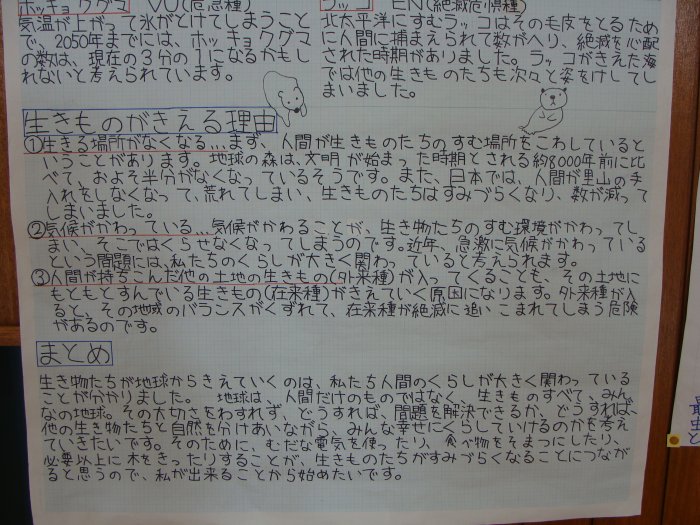 ホッキョクグマ VU(危急種)
気温が上がって氷がとけてしまうこと
で、2050年までには、ホッキョクグマ
の数は、現在の3分の1になるかもし
れないと考えられています。
ラッコ EN(絶滅危惧種)
北太平洋にすむラッコはその毛皮をとるため
に人間に捕まえられて数がへり、絶滅を心配
された時期がありました。ラッコがきえた海
では他の生きものたちも次々と姿をけしてし
まいました。
生きものがきえる理由
①生きる場所がなくなる…まず、人間が生きものたちのすむ場所をこわしていると
いうことがあります。地球の森は、文明が始まった時期とされる約8000年前に比
べて、およそ半分がなくなっているそうです。また、日本では、人間が里山の手
入れをしなくなって、荒れてしまい、生きものたちはすみづらくなり、数が減って
しまいました。
②気候がかわっている…気候がかわることが、生き物たちのすむ環境がかわってし
まい、そこではくらせなくなってしまうのです。近年、急激に気候がかわっている
という問題には、私たちのくらしが大きく関わっていると考えられます。
③人間が持ちこんだ他の土地の生きもの(外来種)が入ってくることも、その土地に
もともとすんでいる生きもの(在来種)がきえていく原因になります。外来種が入
ると、その地域のバランスがくずれて、在来種が絶滅に追いこまれてしまう危険
があるのです。
まとめ
生き物たちが地球からきえていくのは、私たち人間のくらしが大きく関わっている
ことが分かりました。地球は、人間だけのものではなく、生きものすべて、みん
なの地球。その大切さをわすれず、どうすれば、問題を解決できるか、どうすれば、
他の生き物たちと自然を分けあいながら、みんな幸せにくらしていけるのかを考え
ていきたいです。そのために、むだな電気を使ったり、食べ物をそまつにしたり、
必要以上に木をきったりすることが、生きものたちがすみづらくなることにつなが
ると思うので、私が出来ることから始めたいです。